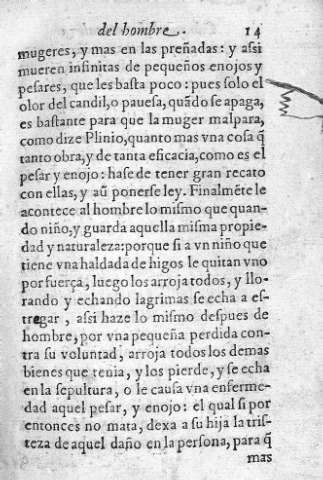 del hombre. 14
mugeres, y mas en las preñadas: y assi
mueren infinitas de pequeños enojos y
pesares, que les basta poco: pues solo el
olor del candil, o pauesa, quãdo se apaga,
es bastante para que la muger malpara,
como dize Plinio, quanto mas vna cosa q̃
tanto obra, y de tanta eficacia, como es el
pesar y enojo: hase de tener gran recato
con ellas, y aũ ponerse ley. Finalmẽte le
acontece al hombre lo mismo que quan-
do niño, y guarda aquella misma propie-
dad y naturaleza: porque si a vn niño que
tiene vna haldada de higos le quitan vno
por fuerça, luego los arroja todos, y llo-
rando y echando lagrimas se echa a es-
tregar, asi haze lo mismo despues de
hombre, por vna pequeña perdida con-
tra su voluntad, arroja todos los demas
bienes que tenia, y los pierde, y se echa
en la sepultura, o le causa vna enferme-
dad aquel pesar, y enojo: el qual si por
entonces no mata, dexa a su hija la tris-
teza de aquel daño en la persona, para q̃
mas